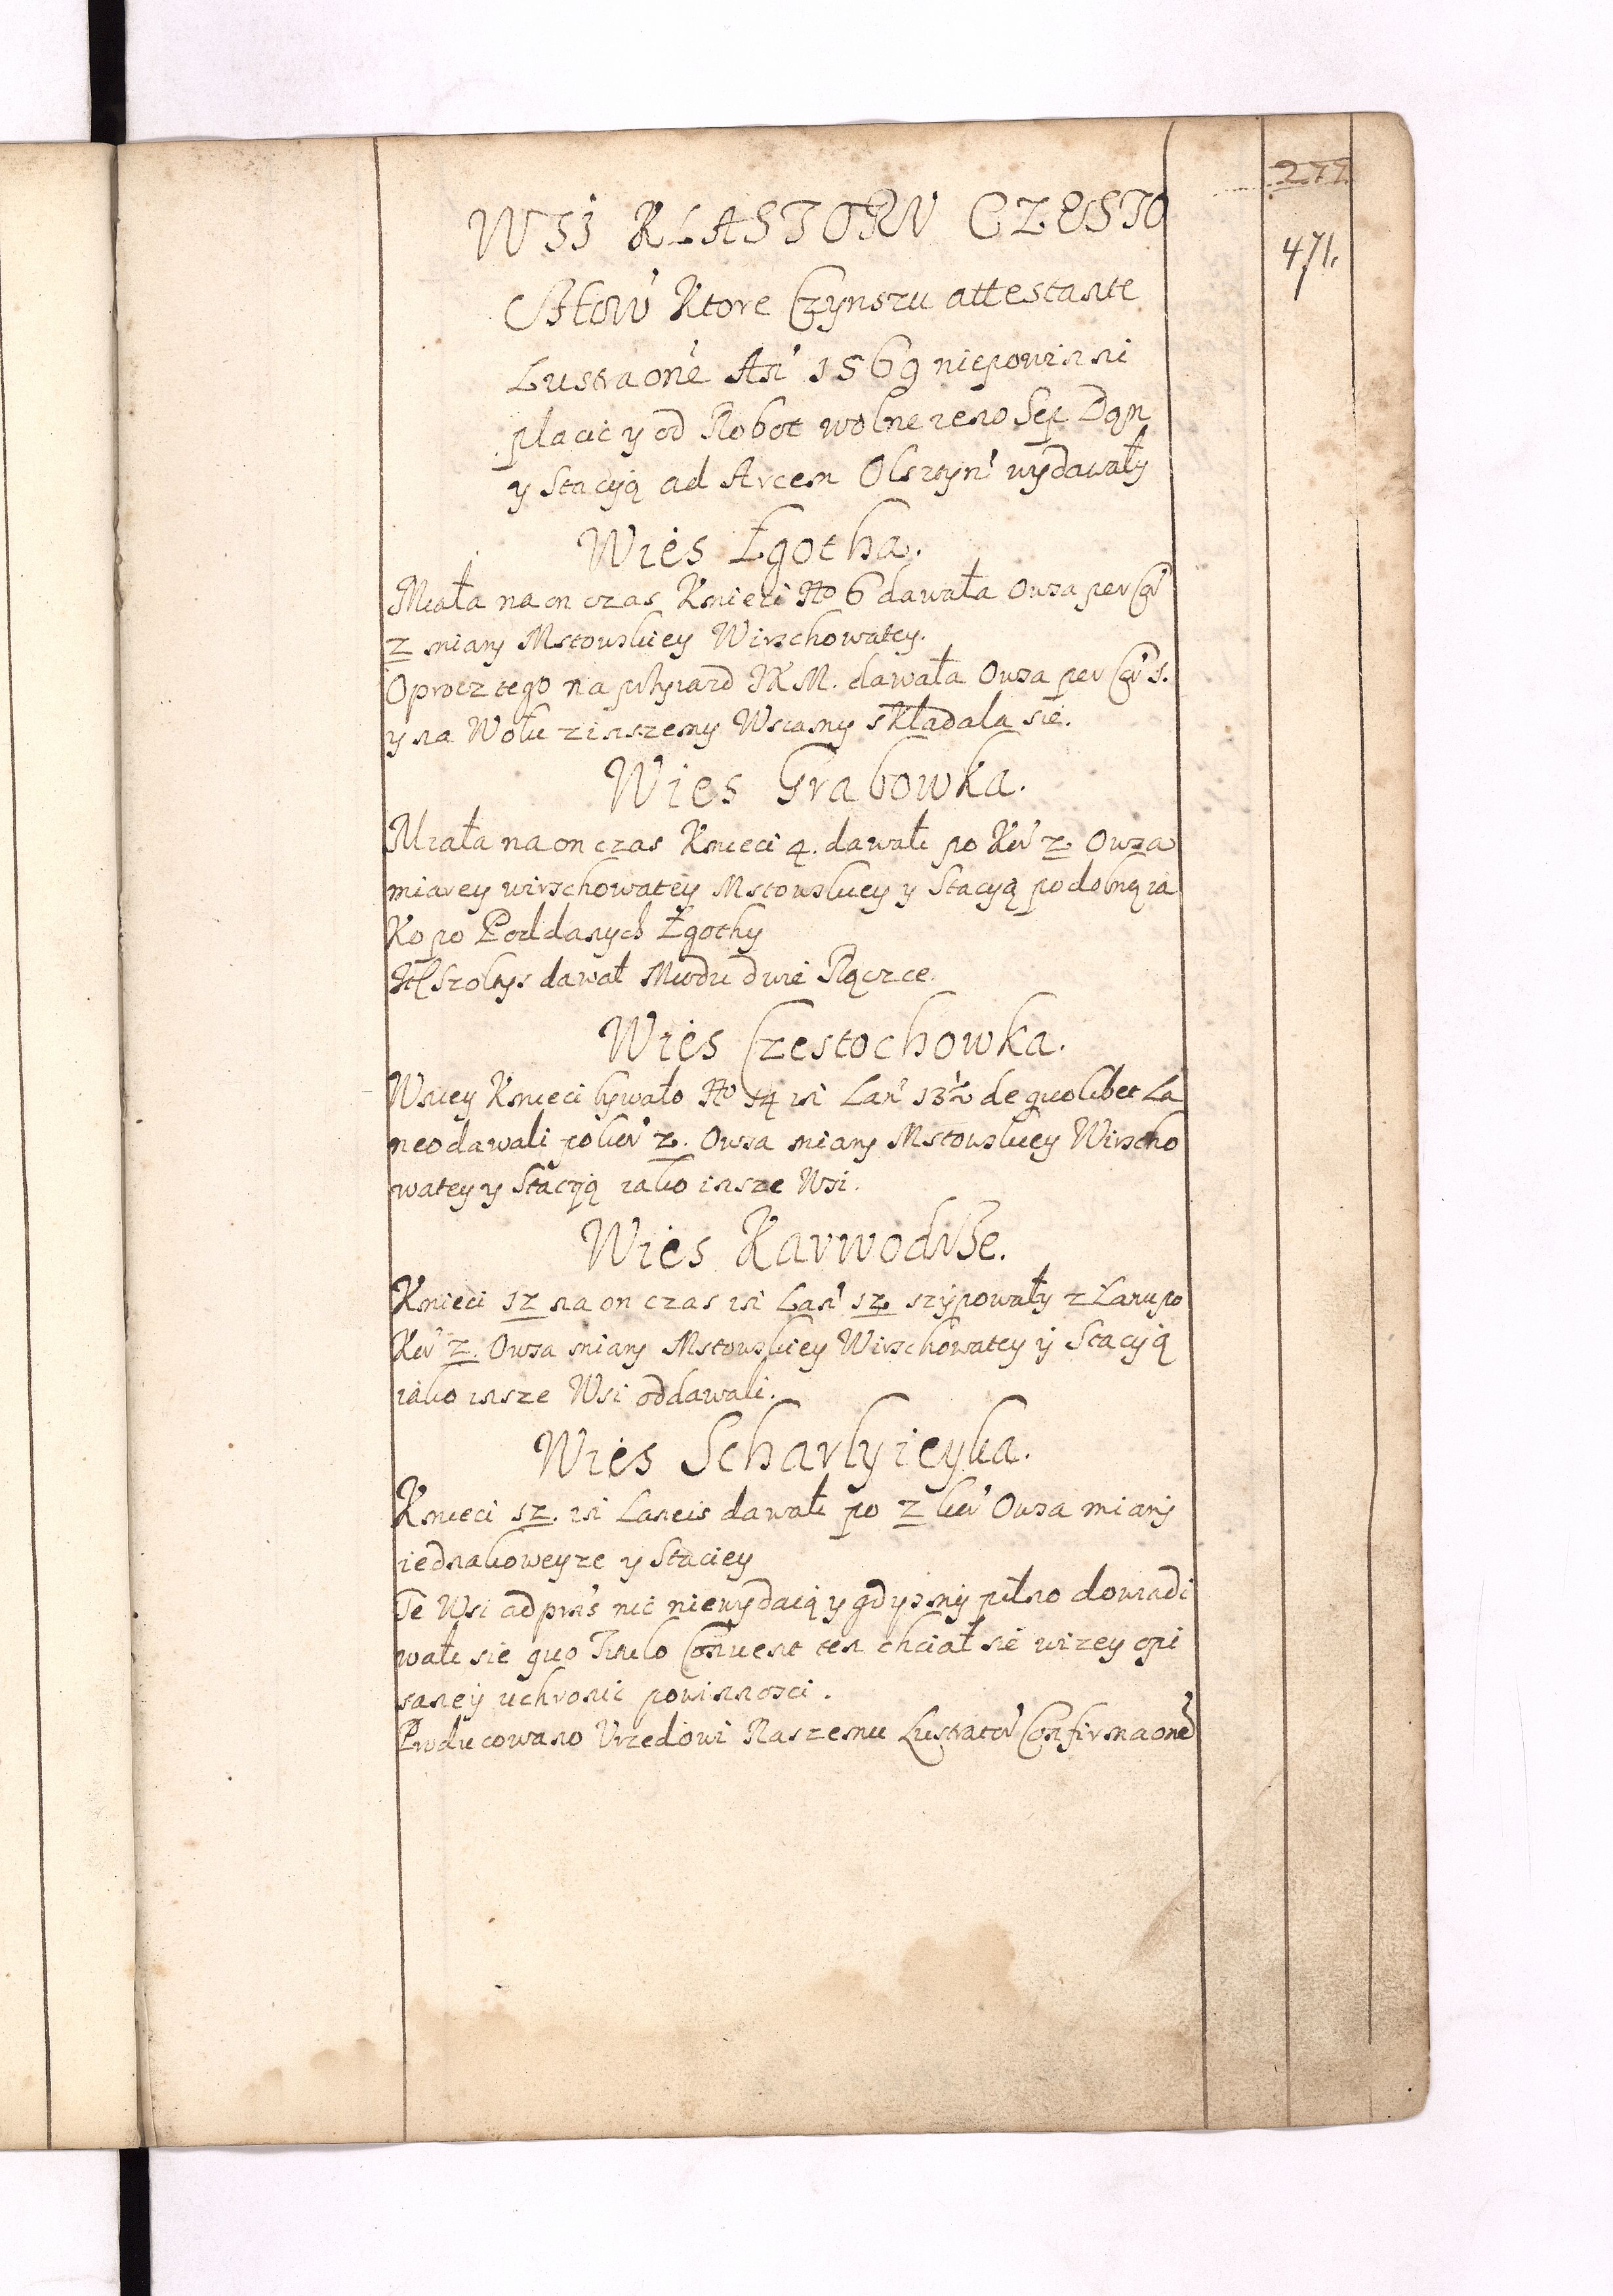 277.
471.
WSI KLASTORU CZESTO
Ktore Czynszu attestante
Lustraone An' 1569 niepowinni
placic y od Robot wolne ieno Sep Dan
y Stacyią ad Arcem Olsztyn' wydawały
Wies Łgotha.
Miała na on czas Kmieci No 6 dawała Owsa per Cor'
2 miary Mstowskiey Wirschowatey.
Oprocz tego na przyiazd JKM. dawała Owsa per Cor' 1.
y na Wołu z inszemy Wsiamy składala sie.
Wies Grabowka.
Miała na on czas Kmieci 4. dawałi po Kor' 2. Owsa
miarey wirschowatey Mstowskiey y Stacyą podobną ia
Ko po Poddanych Łgothy
It Szoltys dawał Miodu dwie Rączce.
Wies Czestochowka.
Wsiey Kmieci bywało No 14 in Lan' 13½ de quolibet La
neo dawali po kor' 2. Owsa miary Mstowskiey Wirscho
watey y Stacyją iako insze Wsi.
Wies Kawodrße.
Kmieci 12 na on czas in Lan' 12. szypowały z Łanu po
Kor' 2. Owsa miary Mstowskiey Wirschowatey y Stacyią
iako insze Wsi oddawali.
Wies Scharlyieyka.
Kmieci 12. in Laneis dawałi po 2 kor' Owsa miary
iednakoweyze y Staciey
Te Wsi ad pns nic niewydaią y gdysmy pilno dowiadi
wałi sie quo Titulo Conuent ten chciał sie wizey opi
saney uchronic powinnosci.
Producowano Vrzedowi Naszemu Lustrator' Confirmaone